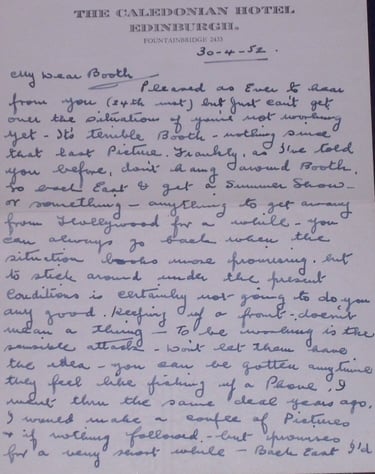 THE CALEDONIAN HOTEL
EDINBURGH.
FOUNTAINBRIDGE 2433
30-4-52.
My Dear Booth
Pleased as Ever to hear
from you (24th inst) but Just can't get
over the situation of you're not working
yet - It's terrible Booth - nothing since
that last Picture. Frankly, as I've told
you before, don't hang around Booth.
Go back East & get a Summer Show -
or something - anything to get away
from Hollywood for a while - you
can always go back when the
situation looks more promising. but
to stick around under the present
Conditions is certainly not going to do you
any good. Keeping up a front - doesn't
mean a thing - To be working is the
sensible attack - Don't let them have
the idea - you can be gotten anytime
they feel like picking up a Phone. I
went thru the same deal years ago.
I would make a couple of Pictures
& if nothing followed - but promises
for a very short while - Back East I'd